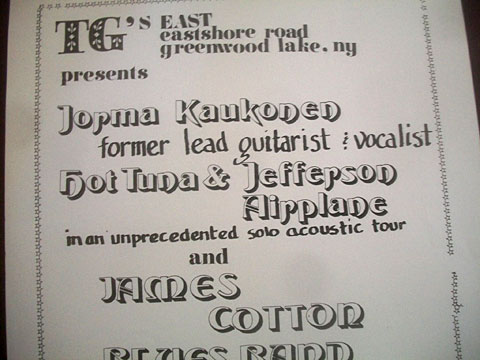 TG'S EAST
eastshore road
greenwood lake, ny
presents
Jorma Kaukonen
former lead guitarist & vocalist
Hot Tuna & Jefferson
Airplane
in an unprecedented solo acoustic tour
and
JAMES
COTTON
BLUES BAND